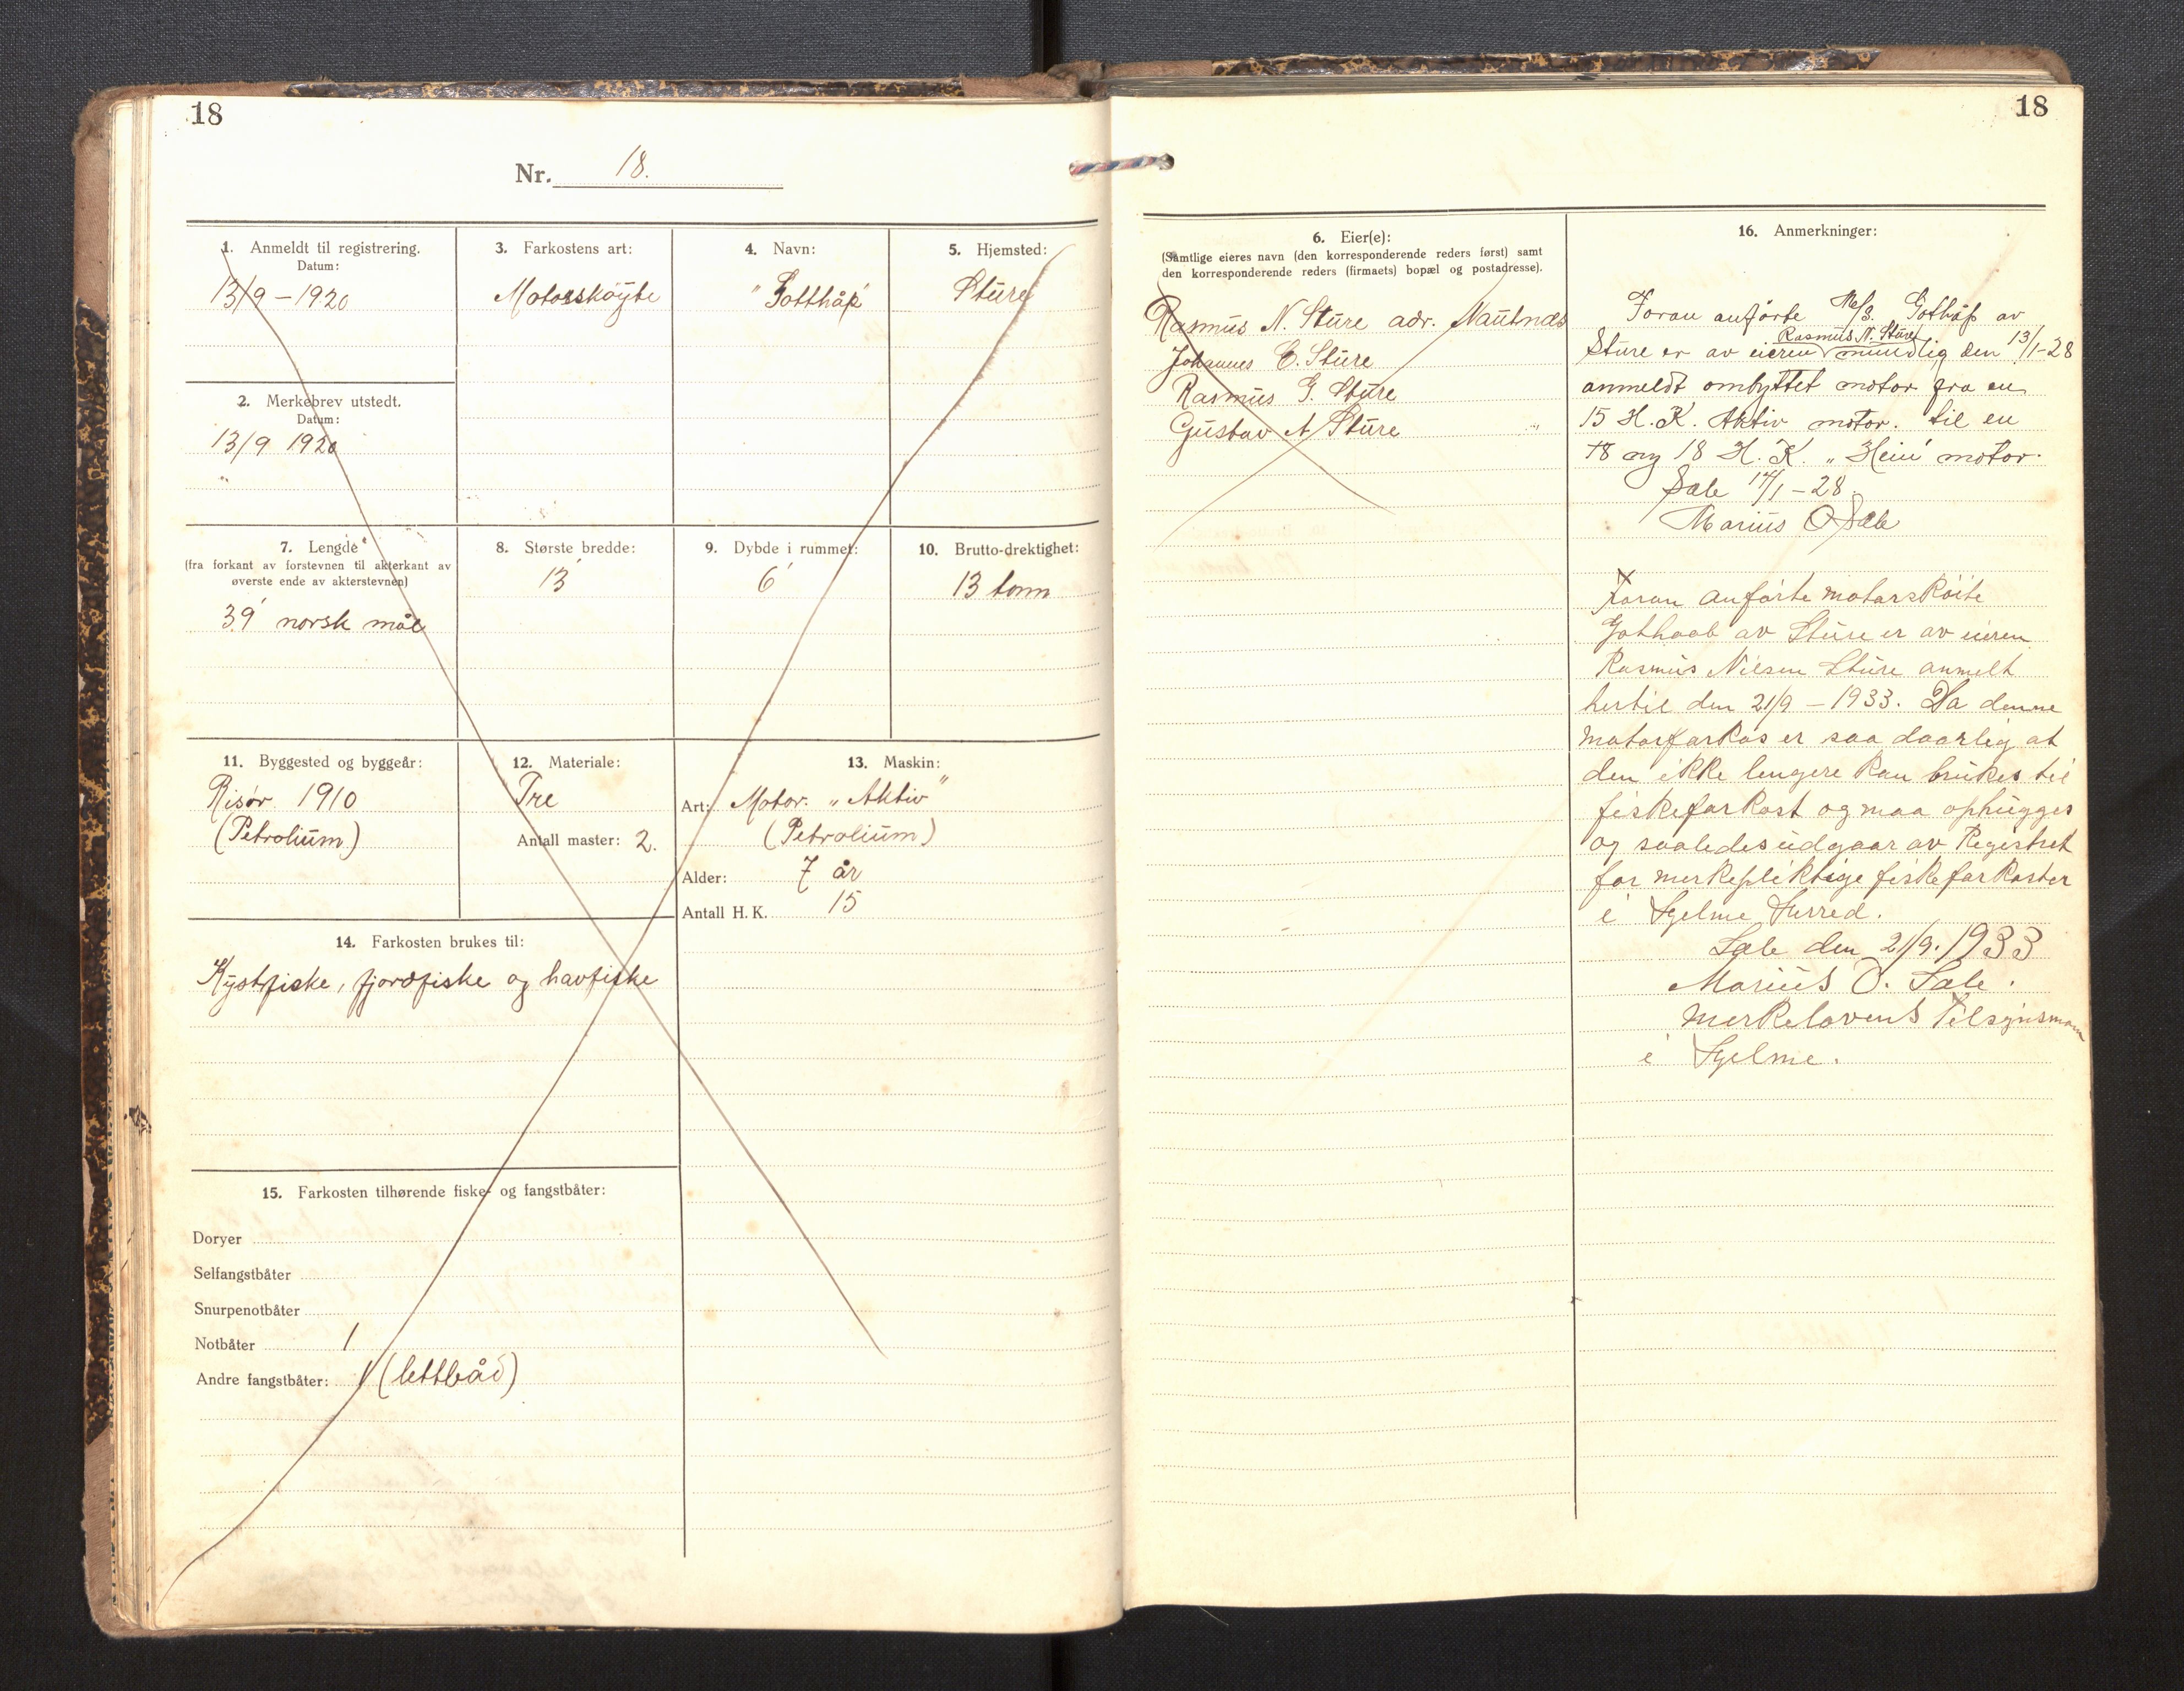 18
Nr. 18.
1. Anmeldt til registrering.
Datum:
13/9 - 1920
2. Merkebrev utstedt.
Datum:
13/9 1920
3. Farkostens art:
Motorskøyte
4. Navn:
"Gotthåp"
5. Hjemsted:
Sture
7. Lengde
(fra forkant av forstevnen til akterkant av
øverste ende av akterstevnen)
39' norsk mål
8. Største bredde:
13'
9. Dybde i rummet:
6'
10. Brutto-drektighet:
13 tonn
11. Byggested og byggeår:
Risør 1910
(Petrolium)
12. Materiale:
Tre
Antall master: 2.
13. Maskin:
Art: Motor. "Aktiv"
(Petrolium)
Alder: 7 år
Antall H. K. 15
14. Farkosten brukes til:
Kystfiske, fjordfiske og havfiske
15. Farkosten tilhørende fiske- og fangstbåter:
Doryer
Selfangstbåter
Snurpenotbåter
Notbåter 1
Andre fangstbåter: 1 (lettbåd)
18
6. Eier(e):
(Samtlige eieres navn (den korresponderende reders først) samt
den korresponderende reders (firmaets) bopæl og postadresse).
Rasmus N. Sture adr. Nautnæs
Johannes E. Sture
Rasmus G. Sture
Gustav A Sture "
16. Anmerkninger:
Foran anførte M/S. Gothåp av
Rasmus N. Sture
Sture er av eieren mundlig den 13/1-28
anmeldt ombyttet motor fra en
15 H.K. Aktiv motor. til en
18 ny 18 H.K. "Hein" motor.
Sæle 17/1-28
Marius O Sæle
Foran anførte motorskøite
Gothaab av Sture er av eieren
Rasmus Nilsen Sture anmelt
hertil den 21/9 - 1933. Da denne
motorfarkos er saa daarlig at
den ikke lengere kan brukes til
fiskefarkost og maa ophugges
og saaledes udgaar av Registret
for merkepliktige fiskefarkoster
i Hjelme Herred.
Sæle den 21/9. 1933
Marius O. Sæle.
Merkelovens Tilsynsmann
i Hjelme.